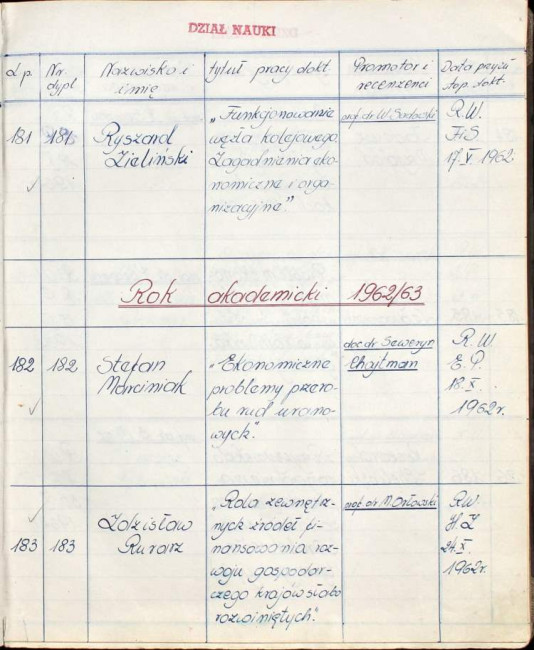 DZIAŁ NAUKI
L.p. Nr. dypl Nazwisko i imię tytuł pracy dokt. Promotor i recenzenci Data przyzn. stop. dokt.
181 181 Ryszard Zieliński
„Funkcjonowanie
węzła kolejowego
Zagadnienia eko-
nomiczne i orga-
nizacyjne."
prof. dr W. Sadowski
R.W.
FiS
17.V.1962.
Rok akademicki 1962/63
182 182 Stefan Marciniak
„Ekonomiczne
problemy przero-
bu rud urano-
wych".
doc dr. Seweryn
Chajtman
R.W.
E.P.
18.X.
1962r.
183 183 Zdzisław Rurarz
„Rola zewnętrz-
nych źródeł fi-
nansowania roz-
woju gospodar-
czego krajów słabo
rozwiniętych".
prof. dr M. Orłowski
R.W.
H.Z
24.X.
1962r.